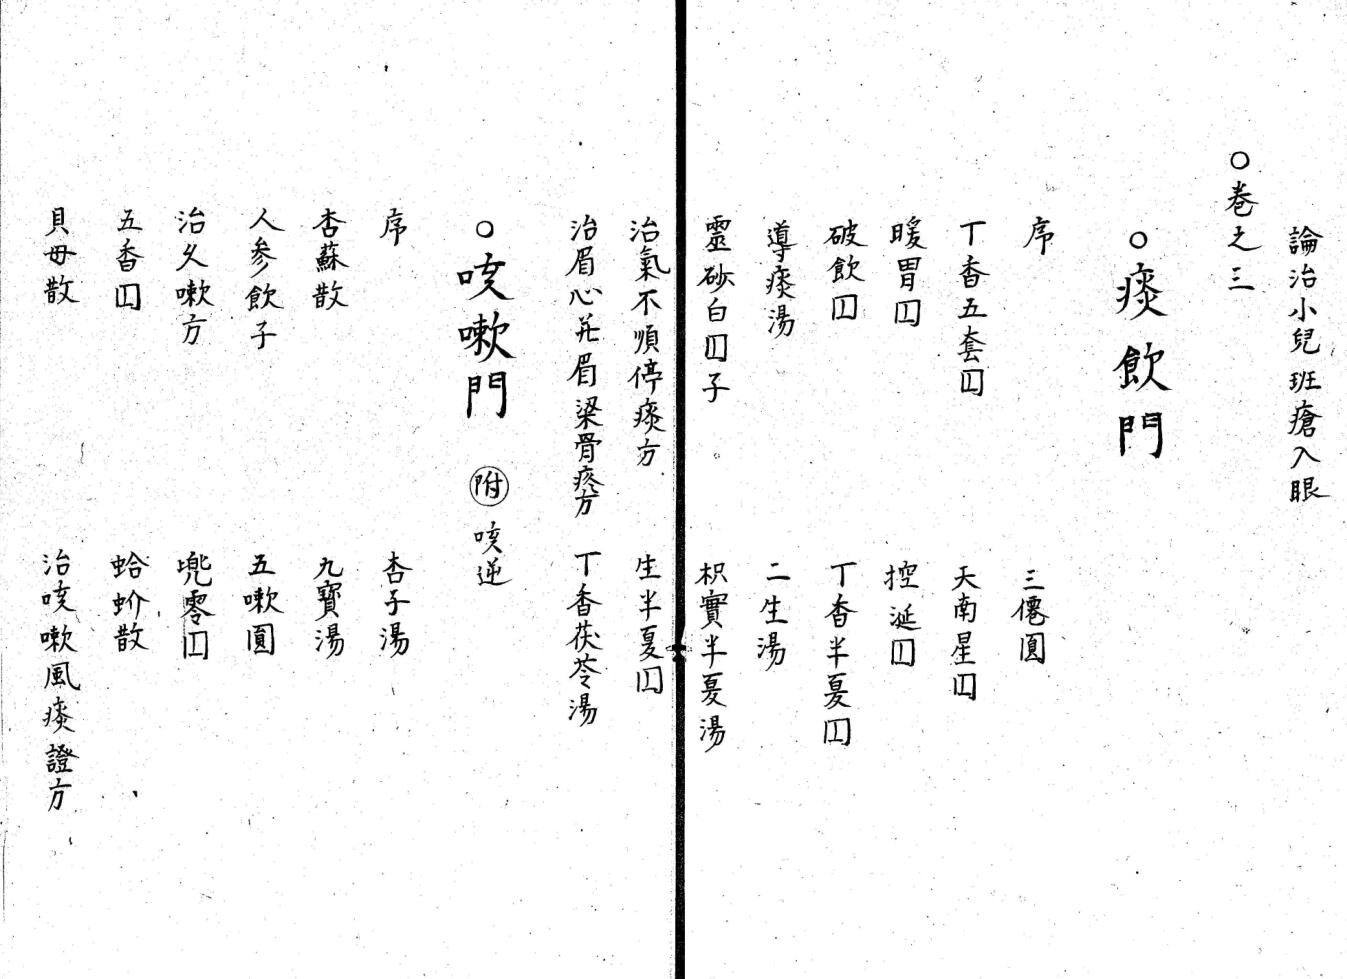 論治小兒班瘡入眼
○卷之三
○痰飲門
序 三僊圓
丁香五套囙 天南星囙
暖胃囙 控涎囙
破飲囙 丁香半夏囙
導痰湯 二生湯
靈砂白囙子 枳實半夏湯
治氣不順停痰方 生半夏囙
治眉心并眉梁骨疼方 丁香茯苓湯
○咳嗽門 附 咳逆
序 杏子湯
杏蘇散 九寶湯
人參飲子 五嗽圓
治久嗽方 兜零囙
五香囙 蛤蚧散
貝母散 治咳嗽風痰證方